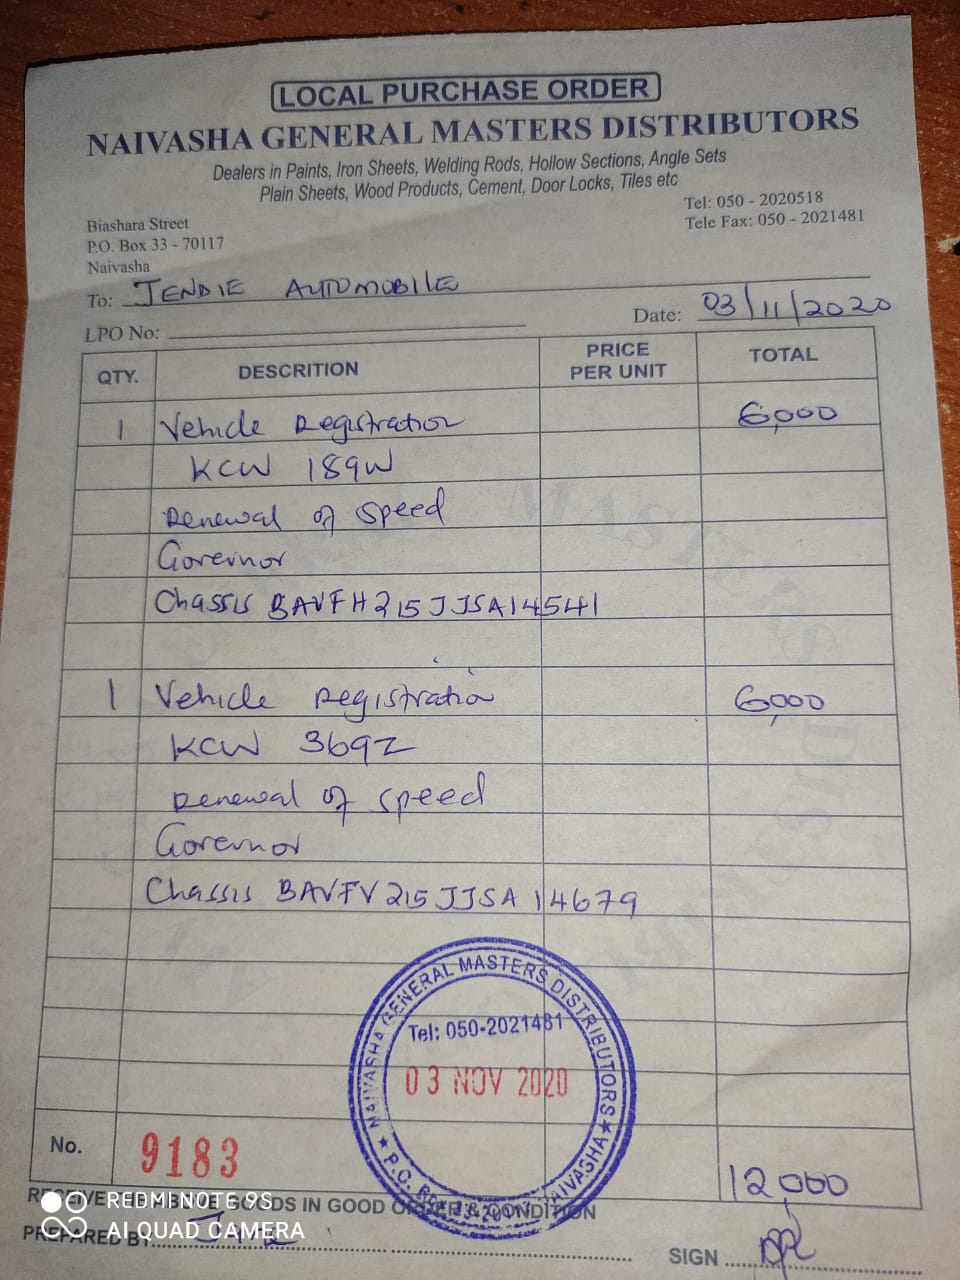 LOCAL PURCHASE ORDER
NAIVASHA GENERAL MASTERS DISTRIBUTORS
Dealers in Paints, Iron Sheets, Welding Rods, Hollow Sections, Angle Sets
Plain Sheets, Wood Products, Cement, Door Locks, Tiles etc
Tel: 050 - 2020518
Tele Fax: 050 - 2021481
Biashara Street
P.O. Box 33 - 70117
Naivasha
To: JENDIE AUTOMOBILE
Date: 03/11/2020
LPO No:
QTY. DESCRITION PRICE PER UNIT TOTAL
1 Vehicle Registration 6,000
KCW 189W
Renewal of Speed
Governor
Chassis BAVFH215JJSA14541
1 Vehicle Registration 6,000
KCW 369Z
Renewal of speed
Governor
Chassis BAVFV215JJSA14679
NAIVASHA GENERAL MASTERS DISTRIBUTORS
Tel: 050-2021481
03 NOV 2020
P.O. NAIVASHA
No. 9183
12,000
RECEIVED THE ABOVE GOODS IN GOOD ORDER & CONDITION
PREPARED BY
SIGN
REDMI NOTE 9S
AI QUAD CAMERA